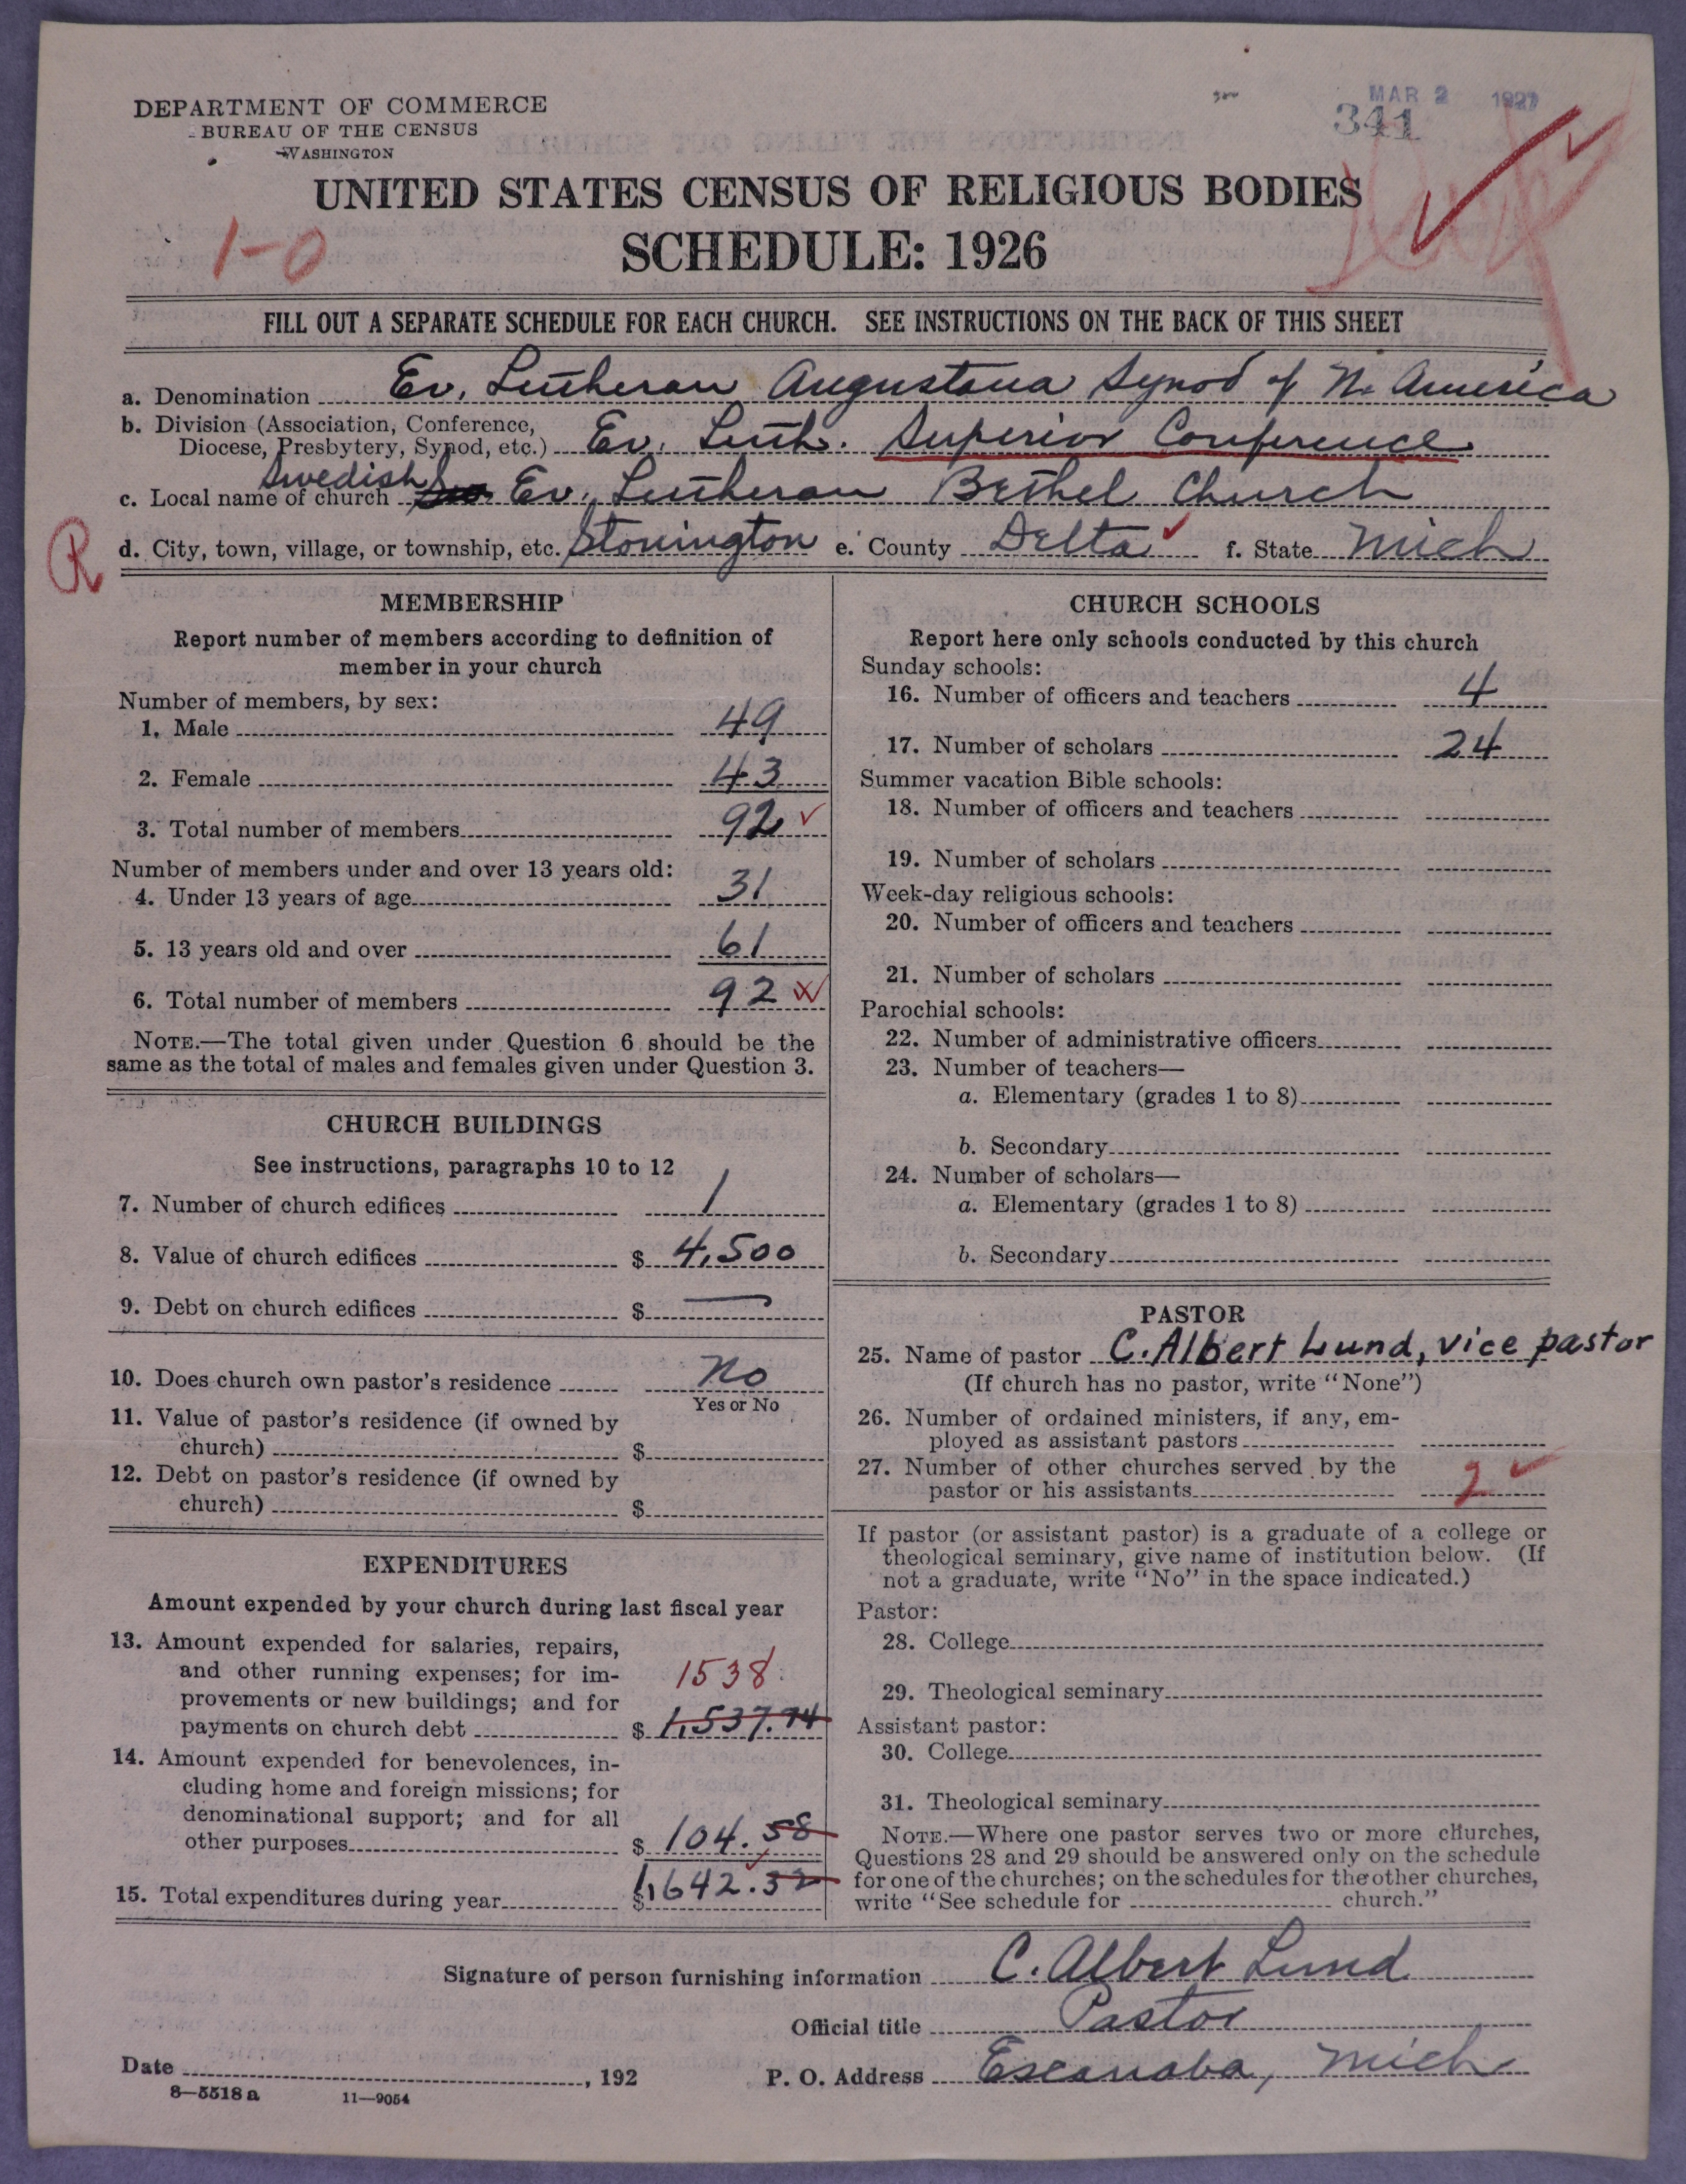 MAR 2 1927
341
DEPARTMENT OF COMMERCE
BUREAU OF THE CENSUS
WASHINGTON
UNITED STATES CENSUS OF RELIGIOUS BODIES
1-0
SCHEDULE: 1926
FILL OUT A SEPARATE SCHEDULE FOR EACH CHURCH. SEE INSTRUCTIONS ON THE BACK OF THIS SHEET
a. Denomination Ev. Lutheran Augustana Synod of N. America
b. Division (Association, Conference,
Diocese, Presbytery, Synod, etc.) Ev. Luth. Superior Conference
c. Local name of church Swedish Ev. Lutheran Bethel Church
R
d. City, town, village, or township, etc. Stonington e. County Delta f. State Mich
MEMBERSHIP
Report number of members according to definition of
member in your church
Number of members, by sex:
1. Male 49
2. Female 43
3. Total number of members 92
Number of members under and over 13 years old:
4. Under 13 years of age 31
5. 13 years old and over 61
6. Total number of members 92
NOTE.—The total given under Question 6 should be the
same as the total of males and females given under Question 3.
CHURCH BUILDINGS
See instructions, paragraphs 10 to 12
7. Number of church edifices 1
8. Value of church edifices $ 4,500
9. Debt on church edifices $ —
10. Does church own pastor's residence No
Yes or No
11. Value of pastor's residence (if owned by
church) $
12. Debt on pastor's residence (if owned by
church) $
EXPENDITURES
Amount expended by your church during last fiscal year
13. Amount expended for salaries, repairs,
and other running expenses; for im-
provements or new buildings; and for
1538
payments on church debt $ 1,537.74
14. Amount expended for benevolences, in-
cluding home and foreign missions; for
denominational support; and for all
other purposes $ 104.58
15. Total expenditures during year $ 1,642.32
CHURCH SCHOOLS
Report here only schools conducted by this church
Sunday schools:
16. Number of officers and teachers 4
17. Number of scholars 24
Summer vacation Bible schools:
18. Number of officers and teachers
19. Number of scholars
Week-day religious schools:
20. Number of officers and teachers
21. Number of scholars
Parochial schools:
22. Number of administrative officers
23. Number of teachers—
a. Elementary (grades 1 to 8)
b. Secondary
24. Number of scholars—
a. Elementary (grades 1 to 8)
b. Secondary
PASTOR
25. Name of pastor C. Albert Lund, vice pastor
(If church has no pastor, write "None")
26. Number of ordained ministers, if any, em-
ployed as assistant pastors
27. Number of other churches served by the
pastor or his assistants 2
If pastor (or assistant pastor) is a graduate of a college or
theological seminary, give name of institution below. (If
not a graduate, write "No" in the space indicated.)
Pastor:
28. College
29. Theological seminary
Assistant pastor:
30. College
31. Theological seminary
NOTE.—Where one pastor serves two or more churches,
Questions 28 and 29 should be answered only on the schedule
for one of the churches; on the schedules for the other churches,
write "See schedule for church."
Signature of person furnishing information C. Albert Lund
Official title Pastor
Date , 192
P. O. Address Escanaba, Mich
8—5518 a 11—9054